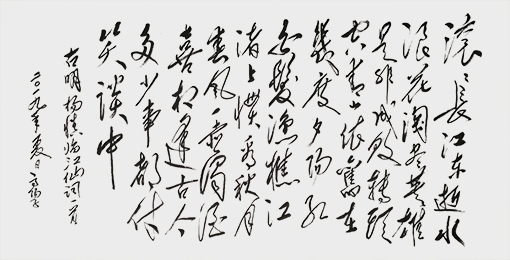 滚滚長江东逝水
浪花淘尽英雄
是非成败转头
空青山依舊在
幾度夕陽红
白髮漁樵江
渚上惯看秋月
春风一壶濁酒
喜相逢古今
多少事都付
笑谈中
明杨慎临江仙词一首
二〇一九年夏日